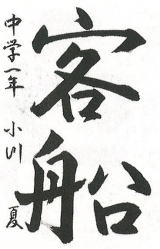 客船
中学一年 小川 夏